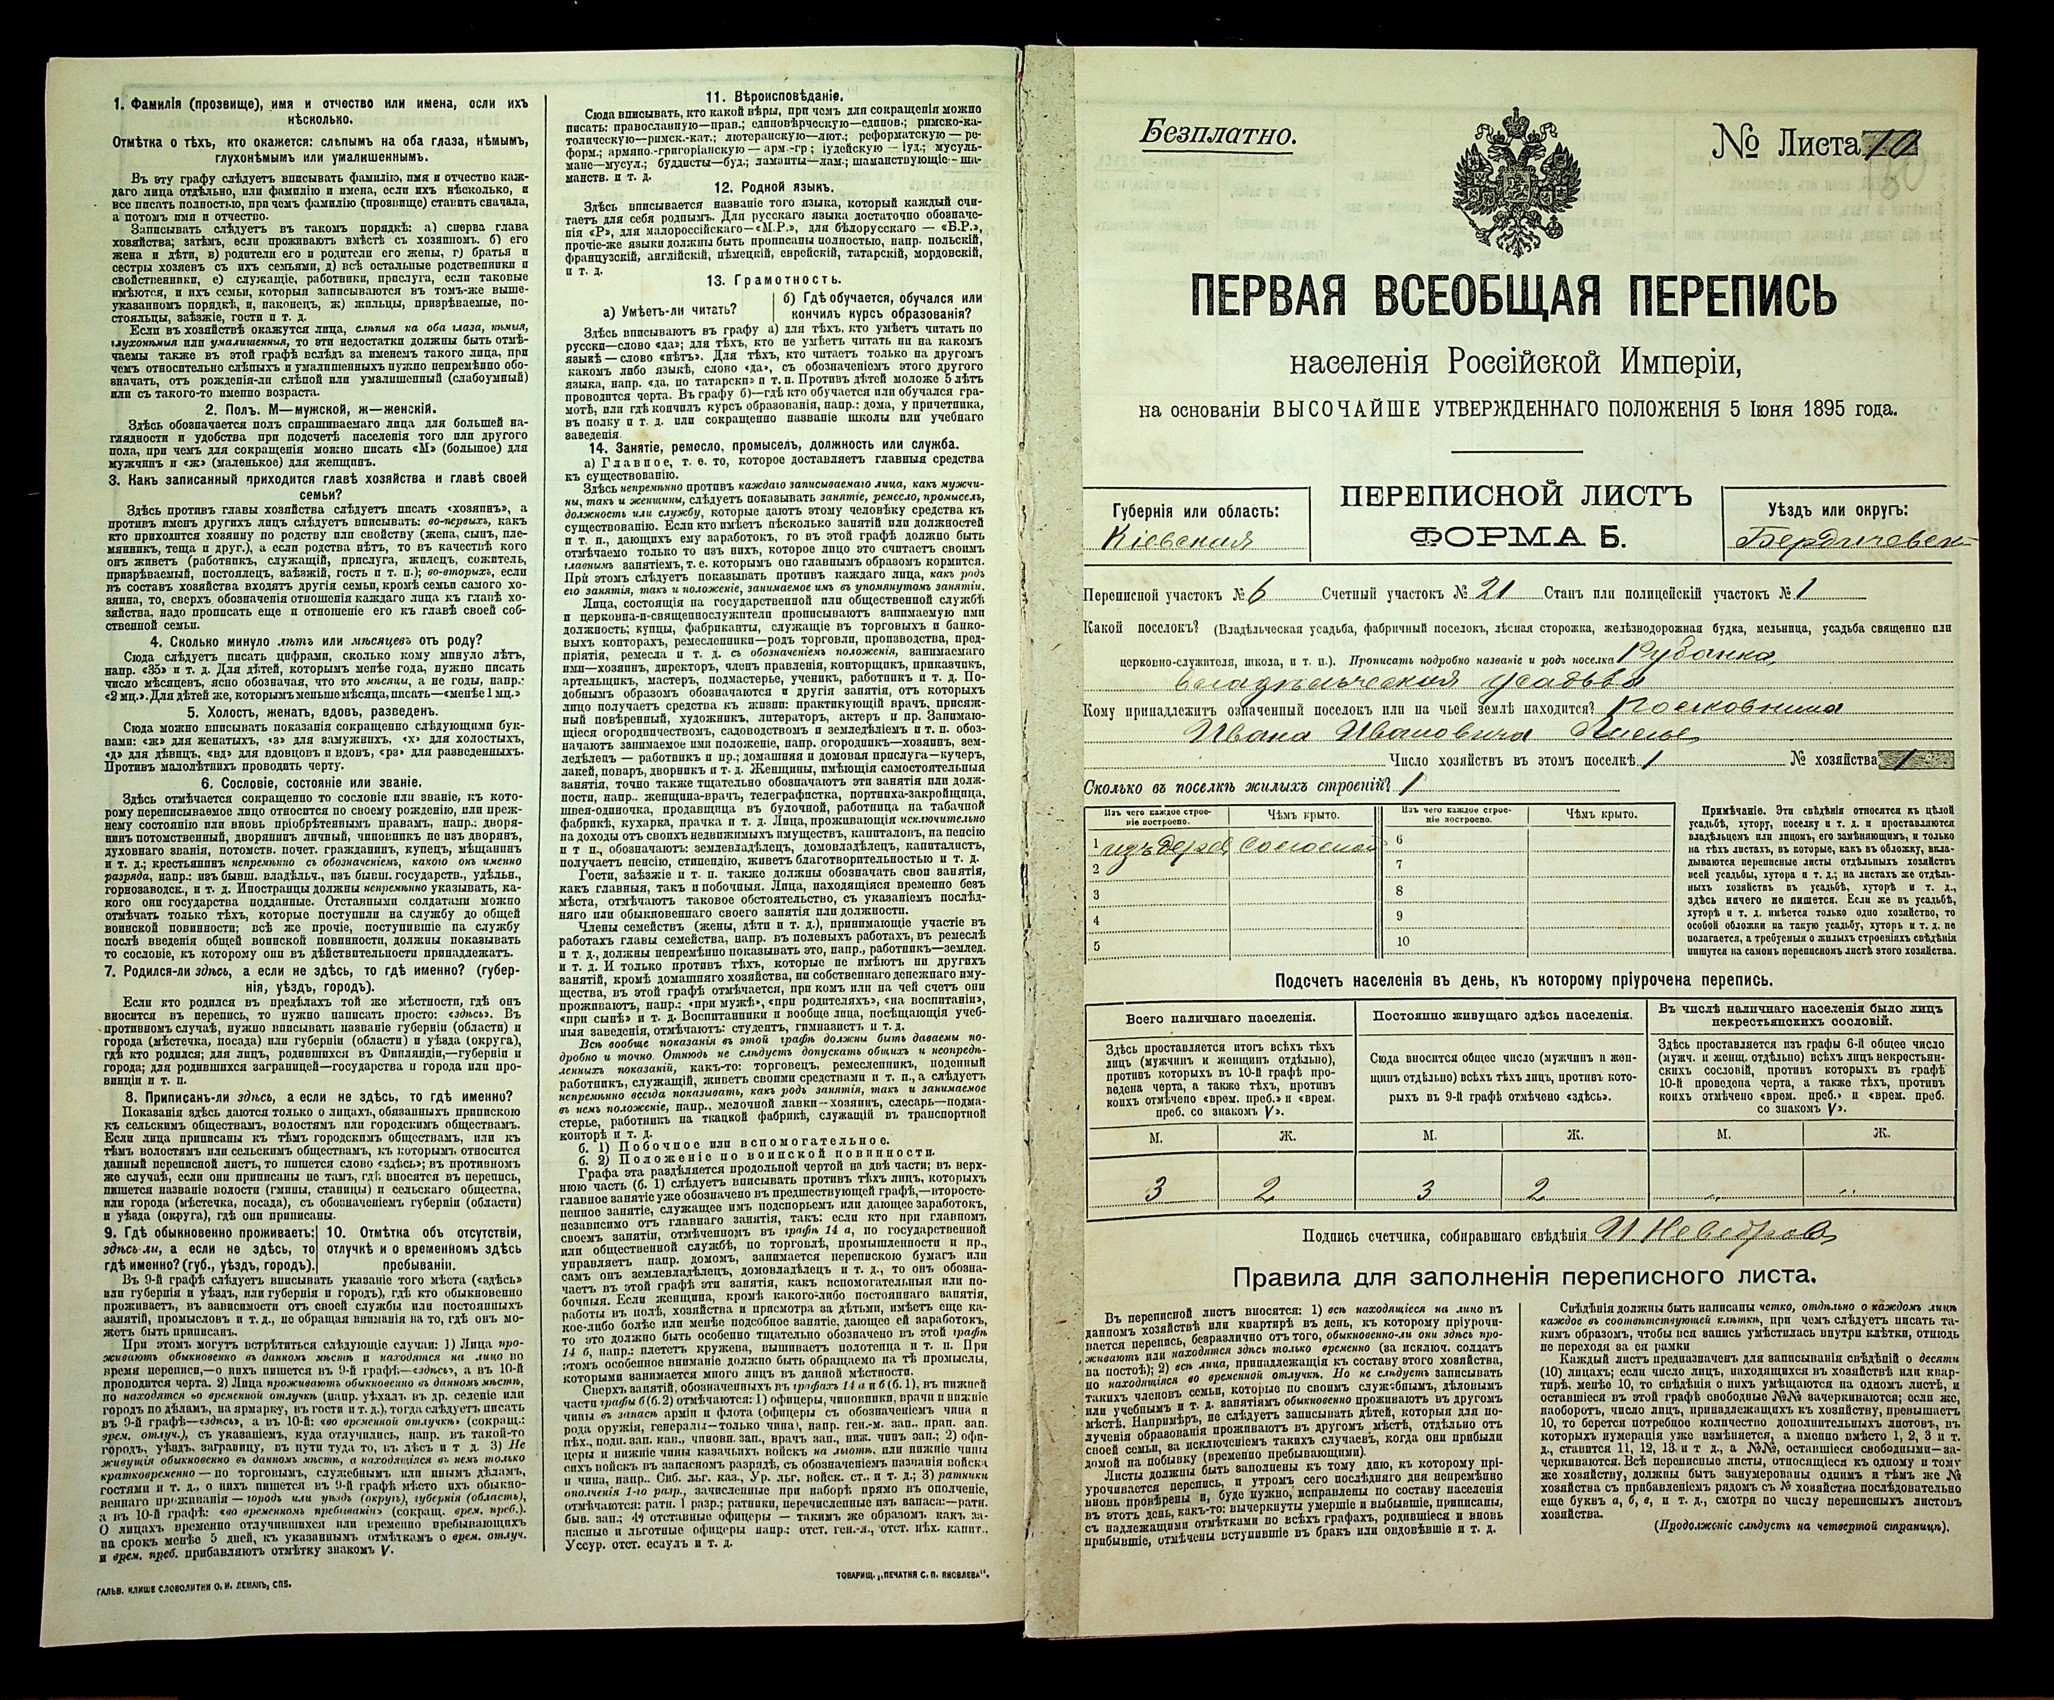 1. Фамилія (прозвище), имя и отчество или имена, если ихъ
нѣсколько.
Отмѣтка о тѣхъ, кто окажется: слѣпымъ на оба глаза, нѣмымъ,
глухонѣмымъ или умалишеннымъ.
Въ эту графу слѣдуетъ вписывать фамилію, имя и отчество каж-
даго лица отдѣльно, или фамилію и имена, если ихъ нѣсколько, и
все писать полностью, при чемъ фамилію (прозвище) ставить сначала,
а потомъ имя и отчество.
Записывать слѣдуетъ въ такомъ порядкѣ: а) сперва глава
хозяйства; затѣмъ, если проживаютъ вмѣстѣ съ хозяиномъ. б) его
жена и дѣти, в) родители его и родители его жены, г) братья и
сестры хозяевъ съ ихъ семьями, д) всѣ остальные родственники и
свойственники, е) служащіе, работники, прислуга, если таковые
имѣются, и ихъ семьи, которыя записываются въ томъ-же выше-
указанномъ порядкѣ, и, наконецъ, ж) жильцы, призрѣваемые, по-
стояльцы, заѣзжіе, гости и т. п.
Если въ хозяйствѣ окажутся лица, слѣпыя на оба глаза, нѣмыя,
глухонѣмыя или умалишенныя, то эти недостатки должны быть отмѣ-
чаемы также въ этой графѣ вслѣдъ за именемъ такого лица, при
чемъ относительно слѣпыхъ и умалишенныхъ нужно непремѣнно обо-
значать, отъ рожденія-ли слѣпой или умалишенный (слабоумный)
или съ такого-то именно возраста.
2. Полъ. М—мужской, ж—женскій.
Здѣсь обозначается полъ спрашиваемаго лица для большей на-
глядности и удобства при подсчетѣ населенія того или другого
пола, при чемъ для сокращенія можно писать «М» (большое) для
мужчинъ и «ж» (маленькое) для женщинъ.
3. Какъ записанный приходится главѣ хозяйства и главѣ своей
семьи?
Здѣсь противъ главы хозяйства слѣдуетъ писать «хозяинъ», а
противъ именъ другихъ лицъ слѣдуетъ вписывать: во-первыхъ, какъ
кто приходится хозяину по родству или свойству (жена, сынъ, пле-
мянникъ, теща и друг.), а если родства нѣтъ, то въ качествѣ кого
онъ живетъ (работникъ, служащій, прислуга, жилецъ, сожитель,
призрѣваемый, постоялецъ, заѣзжій, гость и т. п.); во-вторыхъ, если
въ составъ хозяйства входятъ другія семьи, кромѣ семьи самого хо-
зяина, то, сверхъ обозначенія отношенія каждаго лица къ главѣ хо-
зяйства, надо прописать еще и отношеніе его къ главѣ своей соб-
ственной семьи.
4. Сколько минуло лѣтъ или мѣсяцевъ отъ роду?
Сюда слѣдуетъ писать цифрами, сколько кому минуло лѣтъ,
напр. «35» и т. д. Для дѣтей, которымъ менѣе года, нужно писать
число мѣсяцевъ, ясно обозначая, что это мѣсяцы, а не годы, напр.:
«2 мц.». Для дѣтей же, которымъ меньше мѣсяца, писать—«менѣе 1 мц.»
5. Холостъ, женатъ, вдовъ, разведенъ.
Сюда можно вписывать показанія сокращенно слѣдующими бук-
вами: «ж» для женатыхъ, «з» для замужнихъ, «х» для холостыхъ,
«д» для дѣвицъ, «вд» для вдовцовъ и вдовъ, «рз» для разведенныхъ.
Противъ малолѣтнихъ проводить черту.
6. Сословіе, состояніе или званіе.
Здѣсь отмѣчается сокращенно то сословіе или званіе, къ кото-
рому переписываемое лицо относится по своему рожденію, или преж-
нему состоянію или вновь пріобрѣтеннымъ правамъ, напр.: дворя-
нинъ потомственный, дворянинъ личный, чиновникъ не изъ дворянъ,
духовнаго званія, потомств. почет. гражданинъ, купецъ, мѣщанинъ
и т. д.; крестьянинъ непремѣнно съ обозначеніемъ, какого онъ именно
разряда, напр.: изъ бывш. владѣльч., изъ бывш. государств., удѣльн.,
горнозаводск., и т. д. Иностранцы должны непремѣнно указывать, ка-
кого они государства подданные. Отставными солдатами можно
отмѣчать только тѣхъ, которые поступили на службу до общей
воинской повинности; всѣ же прочіе, поступившіе на службу
послѣ введенія общей воинской повинности, должны показывать
то сословіе, къ которому они въ дѣйствительности принадлежатъ.
7. Родился-ли здѣсь, а если не здѣсь, то гдѣ именно? (губер-
нія, уѣздъ, городъ).
Если кто родился въ предѣлахъ той же мѣстности, гдѣ онъ
вносится въ перепись, то нужно написать просто: «здѣсь». Въ
противномъ случаѣ, нужно вписывать названіе губерніи (области) и
города (мѣстечка, посада) или губерніи (области) и уѣзда (округа),
гдѣ кто родился; для лицъ, родившихся въ Финляндіи,—губерніи и
города; для родившихся заграницей—государства и города или про-
винціи и т. п.
8. Приписанъ-ли здѣсь, а если не здѣсь, то гдѣ именно?
Показанія здѣсь даются только о лицахъ, обязанныхъ припискою
къ сельскимъ обществамъ, волостямъ или городскимъ обществамъ.
Если лица приписаны къ тѣмъ городскимъ обществамъ, или къ
тѣмъ волостямъ или сельскимъ обществамъ, къ которымъ относится
данный переписной листъ, то пишется слово «здѣсь»; въ противномъ
же случаѣ, если они приписаны не тамъ, гдѣ вносятся въ перепись,
пишется названіе волости (гмины, станицы) и сельскаго общества,
или города (мѣстечка, посада), съ обозначеніемъ губерніи (области)
и уѣзда (округа), гдѣ они приписаны.
9. Гдѣ обыкновенно проживаетъ:
здѣсь-ли, а если не здѣсь, то
гдѣ именно? (губ., уѣздъ, городъ).
10. Отмѣтка объ отсутствіи,
отлучкѣ и о временномъ здѣсь
пребываніи.
Въ 9-й графѣ слѣдуетъ вписывать указаніе того мѣста («здѣсь»
или губернія и уѣздъ, или губернія и городъ), гдѣ кто обыкновенно
проживаетъ, въ зависимости отъ своей службы или постоянныхъ
занятій, промысловъ и т. д., не обращая вниманія на то, гдѣ онъ мо-
жетъ быть приписанъ.
При этомъ могутъ встрѣтиться слѣдующіе случаи: 1) Лица про-
живаютъ обыкновенно въ данномъ мѣстѣ и находятся на лицо во
время переписи,—о нихъ пишется въ 9-й графѣ—«здѣсь», а въ 10-й
проводится черта. 2) Лица проживаютъ обыкновенно въ данномъ мѣстѣ,
но находятся во временной отлучкѣ (напр. уѣхалъ въ др. селеніе или
городъ по дѣламъ, на ярмарку, въ гости и т. д.), тогда слѣдуетъ писать
въ 9-й графѣ—«здѣсь», а въ 10-й: «во временной отлучкѣ» (сокращ.:
врем. отлуч.), съ указаніемъ, куда отлучились, напр. въ такой-то
городъ, уѣздъ, заграницу, въ пути туда то, въ лѣсъ и т д. 3) Не
живущія обыкновенно въ данномъ мѣстѣ, а находящіяся въ немъ только
кратковременно — по торговымъ, служебнымъ или инымъ дѣламъ,
гостями и т. д., о нихъ пишется въ 9-й графѣ мѣсто ихъ обыкно-
веннаго проживанія — городъ или уѣздъ (округъ), губернія (область),
а въ 10-й графѣ: «во временномъ пребываніи» (сокращ. врем. преб.).
О лицахъ временно отлучившихся или временно пребывающихъ
на срокъ менѣе 5 дней, къ указаннымъ отмѣткамъ о врем. отлуч.
и врем. преб. прибавляютъ отмѣтку знакомъ V.
ГАЛЬВ. КЛИШЕ СЛОВОЛИТНИ О. И. ЛЕМАНЪ, СПБ.
11. Вѣроисповѣданіе.
Сюда вписывать, кто какой вѣры, при чемъ для сокращенія можно
писать: православную—прав.; единовѣрческую—единов.; римско-ка-
толическую—римск.-кат.; лютеранскую—лют.; реформатскую — ре-
форм.; армяно.-григоріанскую — арм -гр ; іудейскую — іуд.; мусуль-
мане—мусул.; буддисты—буд.; ламаиты—лам.; шаманствующіе- ша-
манств. и т. д.
12. Родной языкъ.
Здѣсь вписывается названіе того языка, который каждый счи-
таетъ для себя роднымъ. Для русскаго языка достаточно обозначе-
нія «Р», для малороссійскаго—«М.Р.», для бѣлорусскаго — «Б.Р.»,
прочіе-же языки должны быть прописаны полностью, напр. польскій,
французскій, англійскій, нѣмецкій, еврейскій, татарскій, мордовскій,
и т. д.
13. Грамотность.
а) Умѣетъ-ли читать?
б) Гдѣ обучается, обучался или
кончилъ курсъ образованія?
Здѣсь вписываютъ въ графу а) для тѣхъ, кто умѣетъ читать по
русски—слово «да»; для тѣхъ, кто не умѣетъ читать ни на какомъ
языкѣ — слово «нѣтъ». Для тѣхъ, кто читаетъ только на другомъ
какомъ либо языкѣ, слово «да», съ обозначеніемъ этого другого
языка, напр. «да, по татарски» и т. п. Противъ дѣтей моложе 5 лѣтъ
проводится черта. Въ графу б)—гдѣ кто обучается или обучался гра-
мотѣ, или гдѣ кончилъ курсъ образованія, напр.: дома, у причетника,
въ полку и т. д. или сокращенно названіе школы или учебнаго
заведенія.
14. Занятіе, ремесло, промыселъ, должность или служба.
а) Главное, т. е. то, которое доставляетъ главныя средства
къ существованію.
Здѣсь непремѣнно противъ каждаго записываемаго лица, какъ мужчи-
ны, такъ и женщины, слѣдуетъ показывать занятіе, ремесло, промыселъ,
должность или службу, которые даютъ этому человѣку средства къ
существованію. Если кто имѣетъ нѣсколько занятій или должностей
и т. п., дающихъ ему заработокъ, то въ этой графѣ должно быть
отмѣчаемо только то изъ нихъ, которое лицо это считаетъ своимъ
главнымъ занятіемъ, т. е. которымъ оно главнымъ образомъ кормится.
При этомъ слѣдуетъ показывать противъ каждаго лица, какъ родъ
его занятія, такъ и положеніе, занимаемое имъ въ упомянутомъ занятіи.
Лица, состоящія на государственной или общественной службѣ
и церковно-и-священнослужители прописываютъ занимаемую ими
должность; купцы, фабриканты, служащіе въ торговыхъ и банко-
выхъ конторахъ, ремесленники—родъ торговли, производства, пред-
пріятія, ремесла и т. д. съ обозначеніемъ положенія, занимаемаго
ими—хозяинъ, директоръ, членъ правленія, конторщикъ, приказчикъ,
артельщикъ, мастеръ, подмастерье, ученикъ, работникъ и т. д. По-
добнымъ образомъ обозначаются и другія занятія, отъ которыхъ
лицо получаетъ средства къ жизни: практикующій врачъ, присяж-
ный повѣренный, художникъ, литераторъ, актеръ и пр. Занимаю-
щіеся огородничествомъ, садоводствомъ и земледѣліемъ и т. п. обоз-
начаютъ занимаемое ими положеніе, напр. огородникъ—хозяинъ, зем-
ледѣлецъ — работникъ и пр.; домашняя и домовая прислуга—кучеръ,
лакей, поваръ, дворникъ и т. д. Женщины, имѣющія самостоятельныя
занятія, точно также тщательно обозначаютъ эти занятія или долж-
ности, напр.. женщина-врачъ, телеграфистка, портниха-закройщица,
швея-одиночка, продавщица въ булочной, работница на табачной
фабрикѣ, кухарка, прачка и т. д. Лица, проживающія исключительно
на доходы отъ своихъ недвижимыхъ имуществъ, капиталовъ, на пенсію
и т п., обозначаютъ: землевладѣлецъ, домовладѣлецъ, капиталистъ,
получаетъ пенсію, стипендію, живетъ благотворительностью и т. д.
Гости, заѣзжіе и т. п. также должны обозначать свои занятія,
какъ главныя, такъ и побочныя. Лица, находящіяся временно безъ
мѣста, отмѣчаютъ таковое обстоятельство, съ указаніемъ послѣд-
няго или обыкновеннаго своего занятія или должности.
Члены семействъ (жены, дѣти и т. д.), принимающіе участіе въ
работахъ главы семейства, напр. въ полевыхъ работахъ, въ ремеслѣ
и т. д., должны непремѣнно показывать это, напр., работникъ—землед.
и т. д. И только противъ тѣхъ, которые не имѣютъ ни другихъ
занятій, кромѣ домашняго хозяйства, ни собственнаго денежнаго иму-
щества, въ этой графѣ отмѣчается, при комъ или на чей счетъ они
проживаютъ, напр.: «при мужѣ», «при родителяхъ», «на воспитаніи»,
«при сынѣ» и т. д. Воспитанники и вообще лица, посѣщающія учеб-
ныя заведенія, отмѣчаютъ: студентъ, гимназистъ и т. д.
Всѣ вообще показанія въ этой графѣ должны быть даваемы по-
дробно и точно. Отнюдь не слѣдуетъ допускать общихъ и неопредѣ-
ленныхъ показаній, какъ-то: торговецъ, ремесленникъ, поденный
работникъ, служащій, живетъ своими средствами и т. п., а слѣдуетъ
непремѣнно всегда показывать, какъ родъ занятія, такъ и занимаемое
въ немъ положеніе, напр., мелочной лавки—хозяинъ, слесарь—подма-
стерье, работникъ на ткацкой фабрикѣ, служащій въ транспортной
конторѣ и т. д.
б. 1) Побочное или вспомогательное.
б. 2) Положеніе по воинской повинности.
Графа эта раздѣляется продольной чертой на двѣ части; въ верх-
нюю часть (б. 1) слѣдуетъ вписывать противъ тѣхъ лицъ, которыхъ
главное занятіе уже обозначено въ предшествующей графѣ,—второсте-
пенное занятіе, служащее имъ подспорьемъ или дающее заработокъ,
независимо отъ главнаго занятія, такъ: если кто при главномъ
своемъ занятіи, отмѣченномъ въ графѣ 14 а, но государственной
или общественной службѣ, по торговлѣ, промышленности и пр.,
управляетъ напр. домомъ, занимается перепискою бумагъ или
самъ онъ землевладѣлецъ, домовладѣлецъ и т. д., то онъ обозна-
чаетъ въ этой графѣ эти занятія, какъ вспомогательныя или по-
бочныя. Если женщина, кромѣ какого-либо постояннаго занятія,
работы въ полѣ, хозяйства и присмотра за дѣтьми, имѣетъ еще ка-
кое-либо болѣе или менѣе подсобное занятіе, дающее ей заработокъ,
то это должно быть особенно тщательно обозначено въ этой графѣ
14 б, напр.: плететъ кружева, вышиваетъ полотенца и т. п. При
этомъ особенное вниманіе должно быть обращаемо на тѣ промыслы,
которыми занимается много лицъ въ данной мѣстности.
Сверхъ занятій, обозначенныхъ въ графахъ 14 а и б (б. 1), въ нижней
части графы б (б. 2) отмѣчаются: 1) офицеры, чиновники, врачи и нижніе
чины въ запасѣ арміи и флота (офицеры съ обозначеніемъ чина и
рода оружія, генералы—только чина), напр. ген-м. зап., прап. зап.
пѣх., подп. зап. кав., чиновн. зап., врачъ зап., ниж. чинъ зап.; 2) офи-
церы и нижніе чины казачьихъ войскъ на льготѣ, или нижніе чины
сихъ войскъ въ запасномъ разрядѣ, съ обозначеніемъ названія войска
и чина, напр.. Сиб. льг. каз., Ур. льг. войск. ст., и т. д.; 3) ратники
ополченія 1-го разр., зачисленные при наборѣ прямо въ ополченіе,
отмѣчаются: ратн. 1 разр.; ратники, перечисленные изъ запаса:—ратн.
быв. зап.; 4) отставные офицеры — такимъ же образомъ какъ за-
пасные и льготные офицеры напр.: отст. ген.-л., отст. пѣх. капит.,
Уссур. отст. есаулъ и т. д.
ТОВАРИЩ. „ПЕЧАТНЯ С. П. ЯКОВЛЕВА“.
Безплатно.
№ Листа 10
ПЕРВАЯ ВСЕОБЩАЯ ПЕРЕПИСЬ
населенія Россійской Имперіи,
на основаніи ВЫСОЧАЙШЕ УТВЕРЖДЕННАГО ПОЛОЖЕНІЯ 5 Іюня 1895 года.
Губернія или область:
Кіевская
ПЕРЕПИСНОЙ ЛИСТЪ
ФОРМА Б.
Уѣздъ или округъ:
Бердичевск
Переписной участокъ № 6 Счетный участокъ № 21 Станъ или полицейскій участокъ № 1
Какой поселокъ? (Владѣльческая усадьба, фабричный поселокъ, лѣсная сторожка, желѣзнодорожная будка, мельница, усадьба священно или
церковно-служителя, школа, и т. п.). Прописать подробно названіе и родъ поселка
владѣльческая усадьба
Кому принадлежитъ означенный поселокъ или на чьей землѣ находится? Полковника
Ивана Ивановича
Число хозяйствъ въ этомъ поселкѣ 1 № хозяйства 1
Сколько въ поселкѣ жилыхъ строеній? 1
Изъ чего каждое строе-
ніе построено.
Чѣмъ крыто.
Изъ чего каждое строе-
ніе построено.
Чѣмъ крыто.
1 изъ дерев соломой 6
2 7
3 8
4 9
5 10
Примѣчаніе. Эти свѣдѣнія относятся къ цѣлой
усадьбѣ, хутору, поселку и т. д. и проставляются
владѣльцемъ или лицомъ, его замѣняющимъ, и только
на тѣхъ листахъ, въ которые, какъ въ обложку, вкла-
дываются переписные листы отдѣльныхъ хозяйствъ
всей усадьбы, хутора и т. д.; на листахъ же отдѣль-
ныхъ хозяйствъ въ усадьбѣ, хуторѣ и т. д.,
здѣсь ничего не пишется. Если же въ усадьбѣ,
хуторѣ и т. д. имѣется только одно хозяйство, то
особой обложки на такую усадьбу, хуторъ и т. д. не
полагается, а требуемыя о жилыхъ строеніяхъ свѣдѣнія
пишутся на самомъ переписномъ листѣ этого хозяйства.
Подсчетъ населенія въ день, къ которому пріурочена перепись.
Всего наличнаго населенія.
Здѣсь проставляется итогъ всѣхъ тѣхъ
лицъ (мужчинъ и женщинъ отдѣльно),
противъ которыхъ въ 10-й графѣ про-
ведена черта, а также тѣхъ, противъ
коихъ отмѣчено «врем. преб.» и «врем.
преб. со знакомъ V».
Постоянно живущаго здѣсь населенія.
Сюда вносится общее число (мужчинъ и жен-
щинъ отдѣльно) всѣхъ тѣхъ лицъ, противъ кото-
рыхъ въ 9-й графѣ отмѣчено «здѣсь».
Въ числѣ наличнаго населенія было лицъ
некрестьянскихъ сословій.
Здѣсь проставляется изъ графы 6-й общее число
(мужч. и женщ. отдѣльно) всѣхъ лицъ некрестьян-
скихъ сословій, противъ которыхъ въ графѣ
10-й проведена черта, а также тѣхъ, противъ
коихъ отмѣчено «врем. преб.» и «врем. преб.
со знакомъ V».
М. Ж. М. Ж. М. Ж.
3 2 3 2 „ „
Подпись счетчика, собиравшаго свѣдѣнія
Правила для заполненія переписного листа.
Въ переписной листъ вносятся: 1) всѣ находящіеся на лицо въ
данномъ хозяйствѣ или квартирѣ въ день, къ которому пріурочи-
вается перепись, безразлично отъ того, обыкновенно-ли они здѣсь про-
живаютъ или находятся здѣсь только временно (за исключ. солдатъ
на постоѣ); 2) всѣ лица, принадлежащія къ составу этого хозяйства,
но находящіяся во временной отлучкѣ. Но не слѣдуетъ записывать
такихъ членовъ семьи, которые по своимъ служебнымъ, дѣловымъ
или учебнымъ и т. д. занятіямъ обыкновенно проживаютъ въ другомъ
мѣстѣ. Напримѣръ, не слѣдуетъ записывать дѣтей, которыя для по-
лученія образованія проживаютъ въ другомъ мѣстѣ, отдѣльно отъ
своей семьи, за исключеніемъ такихъ случаевъ, когда они прибыли
домой на побывку (временно пребывающими).
Листы должны быть заполнены къ тому дню, къ которому прі-
урочивается перепись, и утромъ сего послѣдняго дня непремѣнно
вновь провѣрены и, буде нужно, исправлены по составу населенія
въ этотъ день, какъ-то: вычеркнуты умершіе и выбывшіе, приписаны,
съ надлежащими отмѣтками во всѣхъ графахъ, родившіеся и вновь
прибывшіе, отмѣчены вступившіе въ бракъ или овдовѣвшіе и т. д.
Свѣдѣнія должны быть написаны четко, отдѣльно о каждомъ лицѣ
каждое въ соотвѣтствующей клѣткѣ, при чемъ слѣдуетъ писать та-
кимъ образомъ, чтобы вся запись умѣстилась внутри клѣтки, отнюдь
не переходя за ея рамки
Каждый листъ предназначенъ для записыванія свѣдѣній о десяти
(10) лицахъ; если число лицъ, находящихся въ хозяйствѣ или квар-
тирѣ, менѣе 10, то свѣдѣнія о нихъ умѣщаются на одномъ листѣ, и
оставшіеся въ этой графѣ свободные №№ зачеркиваются; если же,
наоборотъ, число лицъ, принадлежащихъ къ хозяйству, превышаетъ
10, то берется потребное количество дополнительныхъ листовъ, въ
которыхъ нумерація уже измѣняется, а именно вмѣсто 1, 2, 3 и т.
д., ставится 11, 12, 13 и т д., а №№, оставшіеся свободными—за-
черкиваются. Всѣ переписные листы, относящіеся къ одному и тому
же хозяйству, должны быть занумерованы однимъ и тѣмъ же №
хозяйства съ прибавленіемъ рядомъ съ № хозяйства послѣдовательно
еще буквъ а, б, в, и т. д., смотря по числу переписныхъ листовъ
хозяйства.
(Продолженіе слѣдуетъ на четвертой страницѣ).